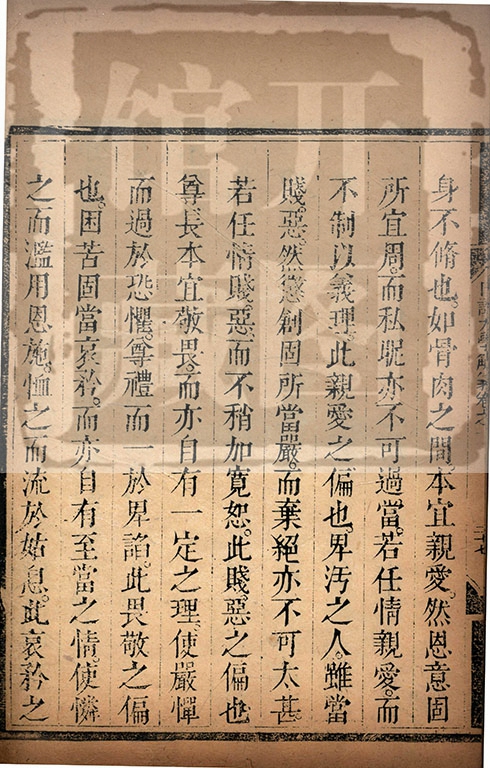 身不脩也。如骨肉之間。本宜親愛。然恩意固
所宜周。而私昵亦不可過當。若任情親愛。而
不制以義理。此親愛之偏也。卑汚之人。雖當
賤惡。然懲創固所當嚴。而棄絕亦不可太甚。
若任情賤惡。而不稍加寬恕。此賤惡之偏也。
尊長本宜敬畏。而亦自有一定之理。使嚴憚
而過於恐懼。尊禮而一於卑諂。此畏敬之偏
也。困苦固當哀矜。而亦自有至當之情。使憐
之而濫用恩施。恤之而流於姑息。此哀矜之